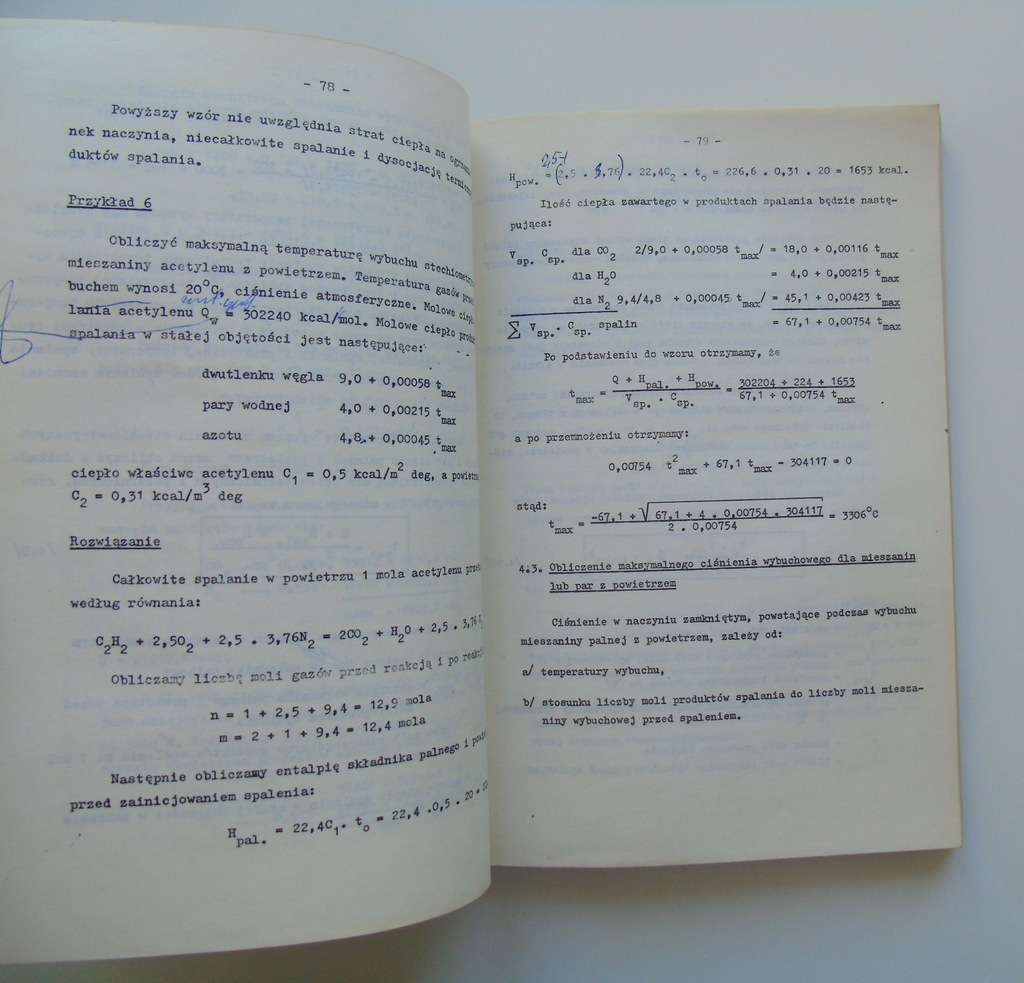 - 78 -
Powyższy wzór nie uwzględnia strat ciepła na
nek naczynia, niecałkowite spalanie i dysocjację
duktów spalania.
Przykład 6
Obliczyć maksymalną temperaturę wybuchu
mieszaniny acetylenu z powietrzem. Temperatura gazów
buchem wynosi 20°C, ciśnienie atmosferyczne. Molowe
lania acetylenu Q_w = 302240 kcal/mol. Molowe ciepło
spalania w stałej objętości jest następujące:
dwutlenku węgla 9,0 + 0,00058 t_max
pary wodnej 4,0 + 0,00215 t_max
azotu 4,8 + 0,00045 t_max
ciepło właściwe acetylenu C₁ = 0,5 kcal/m² deg, a
C₂ = 0,31 kcal/m³ deg
Rozwiązanie
Całkowite spalanie w powietrzu 1 mola acetylenu
według równania:
C₂H₂ + 2,5O₂ + 2,5 . 3,76N₂ = 2CO₂ + H₂O + 2,5 . 3,76
Obliczamy liczbę moli gazów przed reakcją i po
n = 1 + 2,5 + 9,4 = 12,9 mola
m = 2 + 1 + 9,4 = 12,4 mola
Następnie obliczamy entalpię składnika palnego i
przed zainicjowaniem spalenia:
H_pal. = 22,4C₁. t_o = 22,4 .0,5 . 20 =
- 79 -
H_pow. = (2,5 . 3,76) . 22,4C₂ . t_o = 226,6 . 0,31 . 20 = 1653 kcal.
Ilość ciepła zawartego w produktach spalania będzie nastę-
pująca:
V_sp. C_sp. dla CO₂ 2/9,0 + 0,00058 t_max/ = 18,0 + 0,00116 t_max
dla H₂O = 4,0 + 0,00215 t_max
dla N₂ 9,4/4,8 + 0,00045 t_max/ = 45,1 + 0,00423 t_max
∑ V_sp. . C_sp. spalin = 67,1 + 0,00754 t_max
Po podstawieniu do wzoru otrzymamy, że
t_max = (Q + H_pal. + H_pow.) / (V_sp. . C_sp.) = (302204 + 224 + 1653) / (67,1 + 0,00754 t_max) .
a po przemnożeniu otrzymamy:
0,00754 t²_max + 67,1 t_max - 304117 = 0
stąd:
t_max = (-67,1 + √(67,1 + 4 . 0,00754 . 304117)) / (2 . 0,00754) = 3306°C
4.3. Obliczenie maksymalnego ciśnienia wybuchowego dla mieszanin
lub par z powietrzem
Ciśnienie w naczyniu zamkniętym, powstające podczas wybuchu
mieszaniny palnej z powietrzem, zależy od:
a/ temperatury wybuchu,
b/ stosunku liczby moli produktów spalania do liczby moli miesza-
niny wybuchowej przed spaleniem.